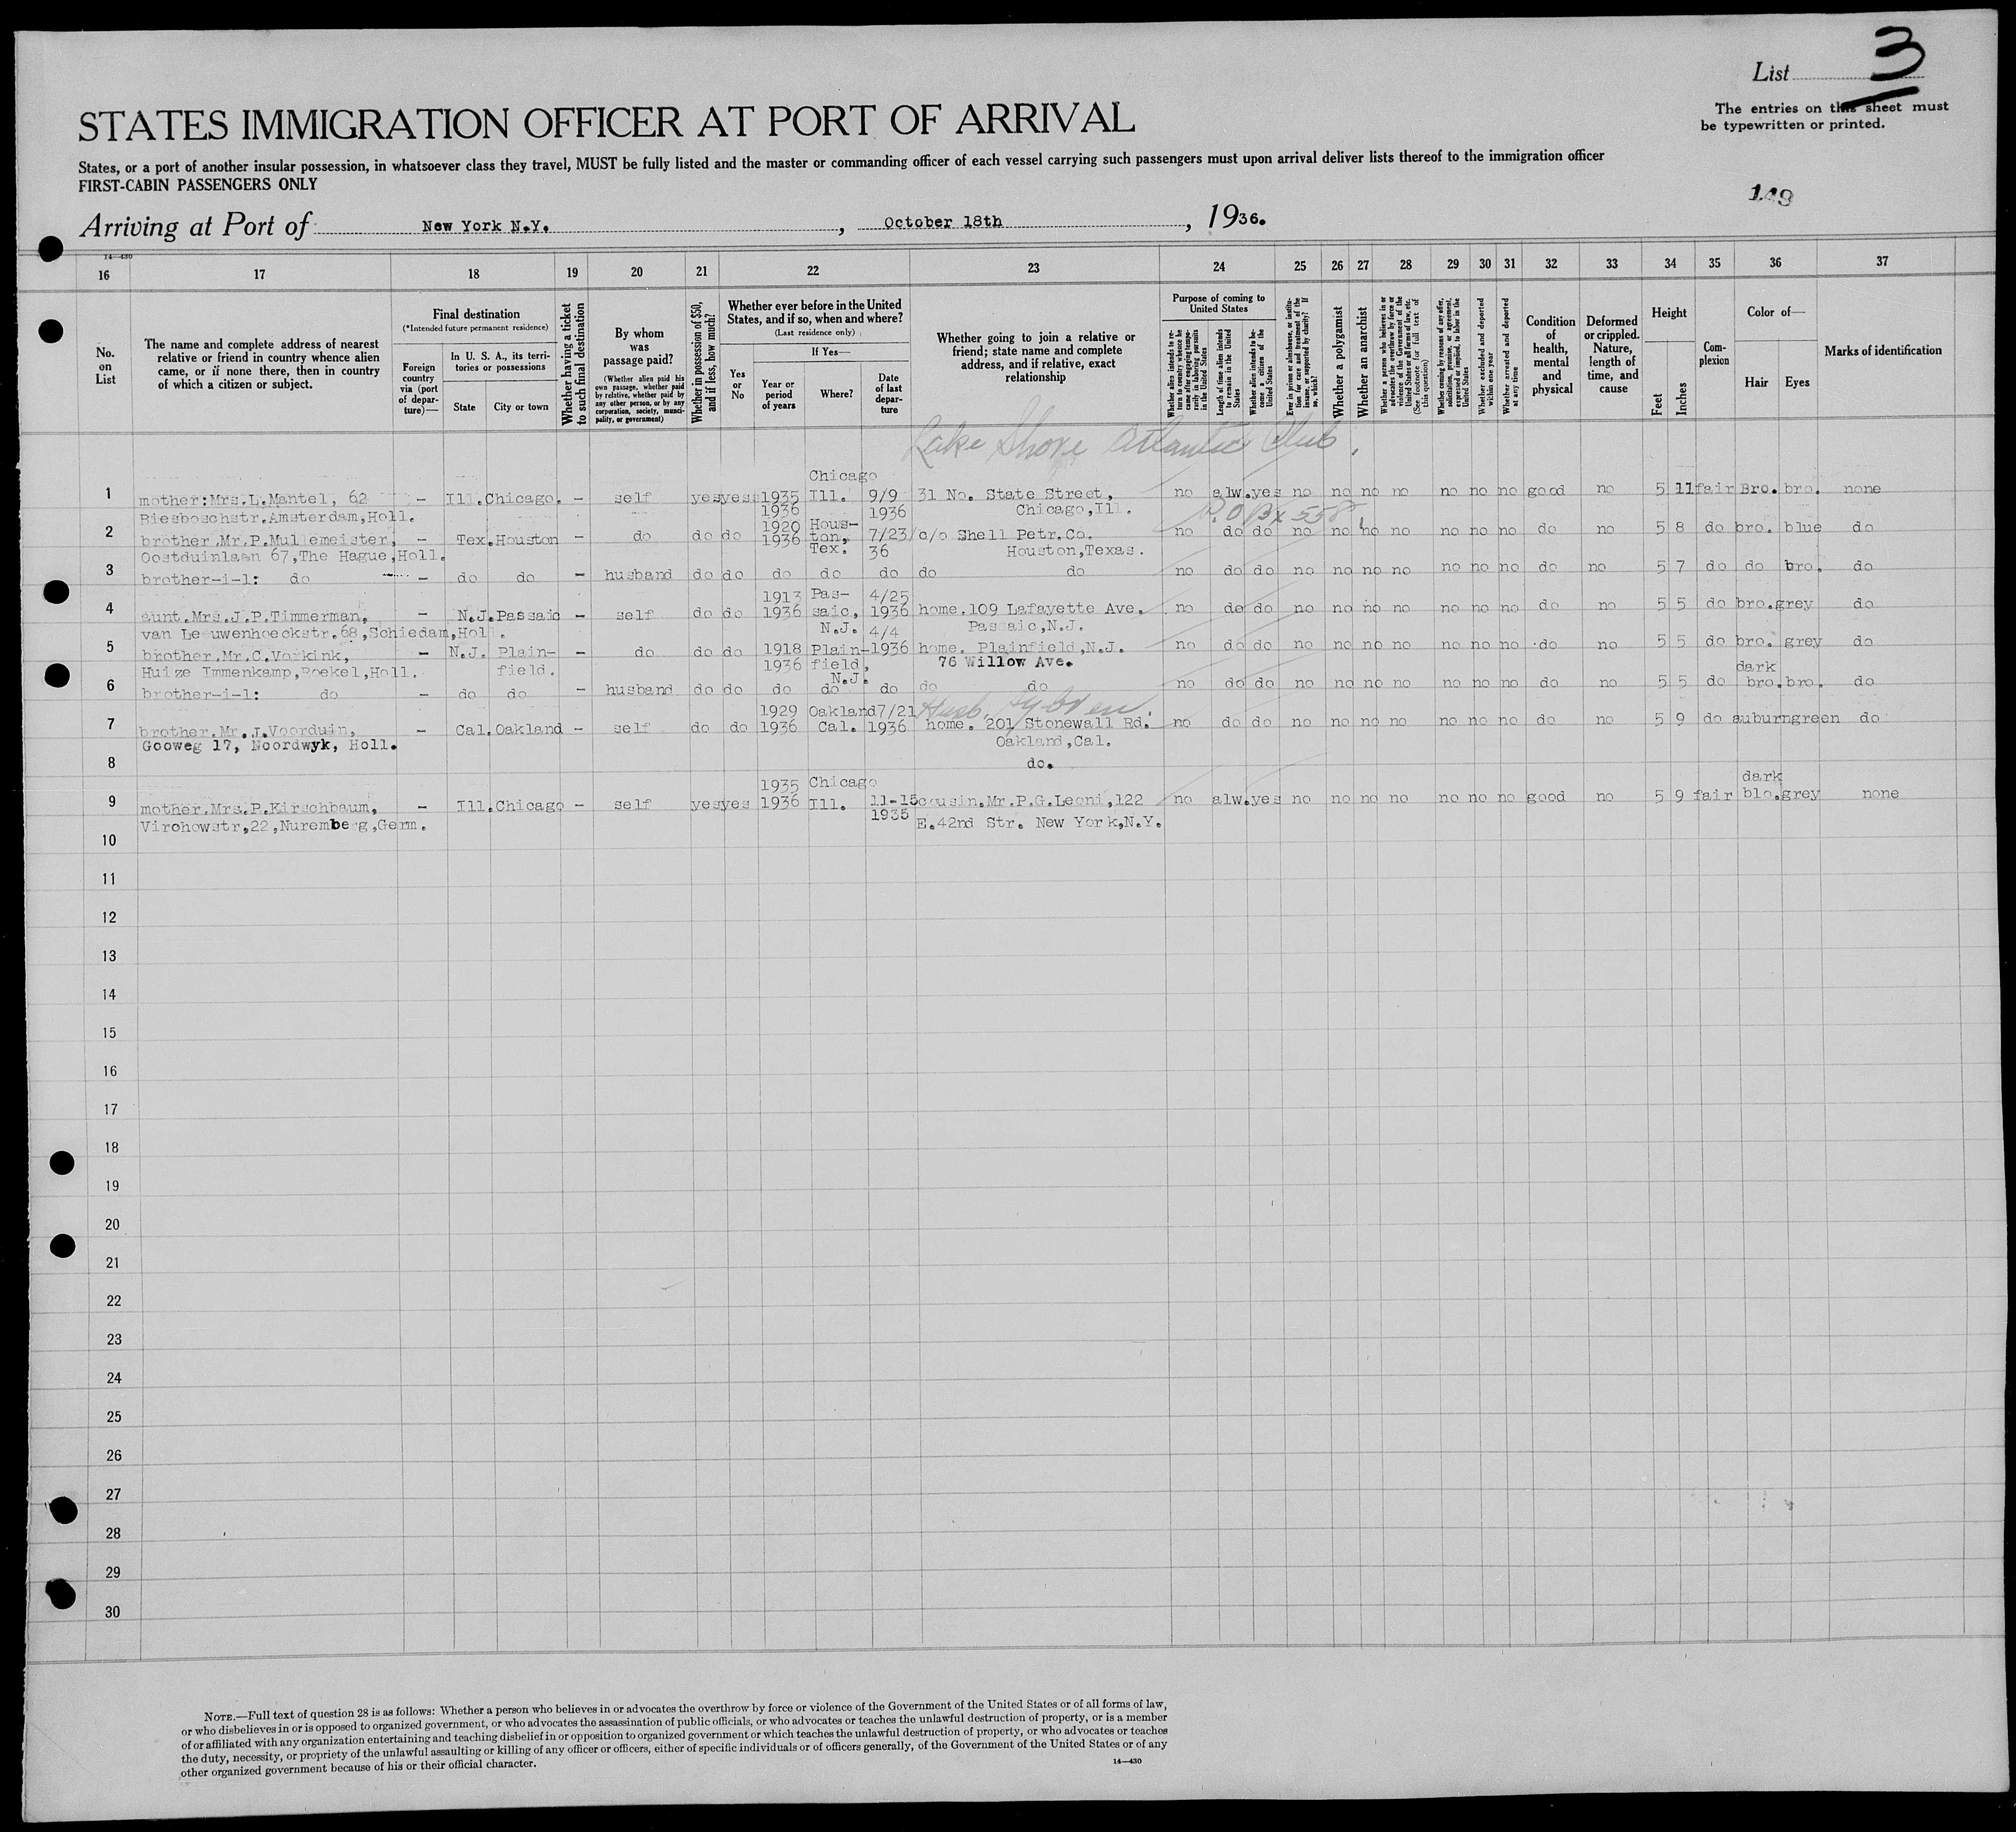 List 3
The entries on this sheet must
be typewritten or printed.
STATES IMMIGRATION OFFICER AT PORT OF ARRIVAL
States, or a port of another insular possession, in whatsoever class they travel, MUST be fully listed and the master or commanding officer of each vessel carrying such passengers must upon arrival deliver lists thereof to the immigration officer
FIRST-CABIN PASSENGERS ONLY
149
Arriving at Port of New York N.Y. , October 18th , 1936.
14-430
16 17 18 19 20 21 22 23 24 25 26 27 28 29 30 31 32 33 34 35 36 37
No. on List
The name and complete address of nearest relative or friend in country whence alien came, or if none there, then in country of which a citizen or subject.
Final destination
(*Intended future permanent residence)
Foreign country via (port of departure)—
In U. S. A., its territories or possessions
State
City or town
Whether having a ticket to such final destination
By whom was passage paid?
(Whether alien paid his own passage, whether paid by relative, whether paid by any other person, or by any corporation, society, municipality, or government)
Whether in possession of $50, and if less, how much?
Whether ever before in the United States, and if so, when and where?
(Last residence only)
Yes or No
If Yes—
Year or period of years
Where?
Date of last departure
Whether going to join a relative or friend; state name and complete address, and if relative, exact relationship
Purpose of coming to United States
Whether alien intends to return to country whence he came after engaging temporarily in laboring pursuits in the United States
Length of time alien intends to remain in the United States
Whether alien intends to become a citizen of the United States
Ever in prison or almshouse, or institution for care and treatment of the insane, or supported by charity? If so, which?
Whether a polygamist
Whether an anarchist
Whether a person who believes in or advocates the overthrow by force or violence of the Government of the United States or all forms of law, etc. (See footnote for full text of this question)
Whether coming by reasons of any offer, solicitation, promise, or agreement, expressed or implied, to labor in the United States
Whether excluded and deported within one year
Whether arrested and deported at any time
Condition of health, mental and physical
Deformed or crippled. Nature, length of time, and cause
Height
Feet
Inches
Complexion
Color of—
Hair
Eyes
Marks of identification
Lake Shore Atlantic Club.
Chicago
1 mother:Mrs.L.Mantel, 62 - Ill. Chicago. - self yes yes 1935 Ill. 9/9 31 No. State Street, no alw. yes no no no no no no no good no 5 11 fair Bro. bro. none
Biesboschstr.Amsterdam,Holl. 1936 1936 Chicago,Ill. P.O Bx 558
2 brother.Mr.P.Mullemeister, - Tex. Houston - do do do 1920 1936 Houston, Tex. 7/23/36 c/o Shell Petr.Co. no do do no no no no no no no do no 5 8 do bro. blue do
Oostduinlaan 67,The Hague,Holl. Houston,Texas.
3 brother-i-l: do - do do - husband do do do do do do do no do do no no no no no no no do no 5 7 do do bro. do
4 aunt.Mrs.J.P.Timmerman, - N.J. Passaic - self do do 1913 1936 Passaic, N.J. 4/25 1936 home.109 Lafayette Ave. no do do no no no no no no no do no 5 5 do bro. grey do
van Leeuwenhoeckstr.68,Schiedam,Holl. Passaic,N.J.
5 brother.Mr.C.Vorkink, - N.J. Plainfield. - do do do 1918 1936 Plainfield, N.J. 4/4 1936 home. Plainfield,N.J. no do do no no no no no no no do no 5 5 do bro. grey do
Huize Immenkamp,Boekel,Holl. 76 Willow Ave.
6 brother-i-l: do - do do - husband do do do do do do do no do do no no no no no no no do no 5 5 do dark bro. bro. do
7 brother.Mr.J.Voorduin, - Cal. Oakland - self do do 1929 1936 Oakland Cal. 7/21 1936 home. 201 Stonewall Rd. no do do no no no no no no no do no 5 9 do auburn green do
Gooweg 17, Noordwyk, Holl. Oakland,Cal.
8 do.
9 mother.Mrs.P.Kirschbaum, - Ill. Chicago - self yes yes 1935 1936 Chicago Ill. 11-15 1935 cousin.Mr.P.G.Leoni,122 no alw. yes no no no no no no no good no 5 9 fair dark blo. grey none
Virchowstr,22,Nuremberg,Germ. E.42nd Str. New York,N.Y.
10
11
12
13
14
15
16
17
18
19
20
21
22
23
24
25
26
27
28
29
30
NOTE.—Full text of question 28 is as follows: Whether a person who believes in or advocates the overthrow by force or violence of the Government of the United States or of all forms of law,
or who disbelieves in or is opposed to organized government, or who advocates the assassination of public officials, or who advocates or teaches the unlawful destruction of property, or is a member
of or affiliated with any organization entertaining and teaching disbelief in or opposition to organized government or which teaches the unlawful destruction of property, or who advocates or teaches
the duty, necessity, or propriety of the unlawful assaulting or killing of any officer or officers, either of specific individuals or of officers generally, of the Government of the United States or of any
other organized government because of his or their official character.
14—430